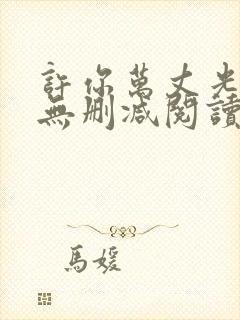 許你萬丈光
無刪減閱讀
馬媛